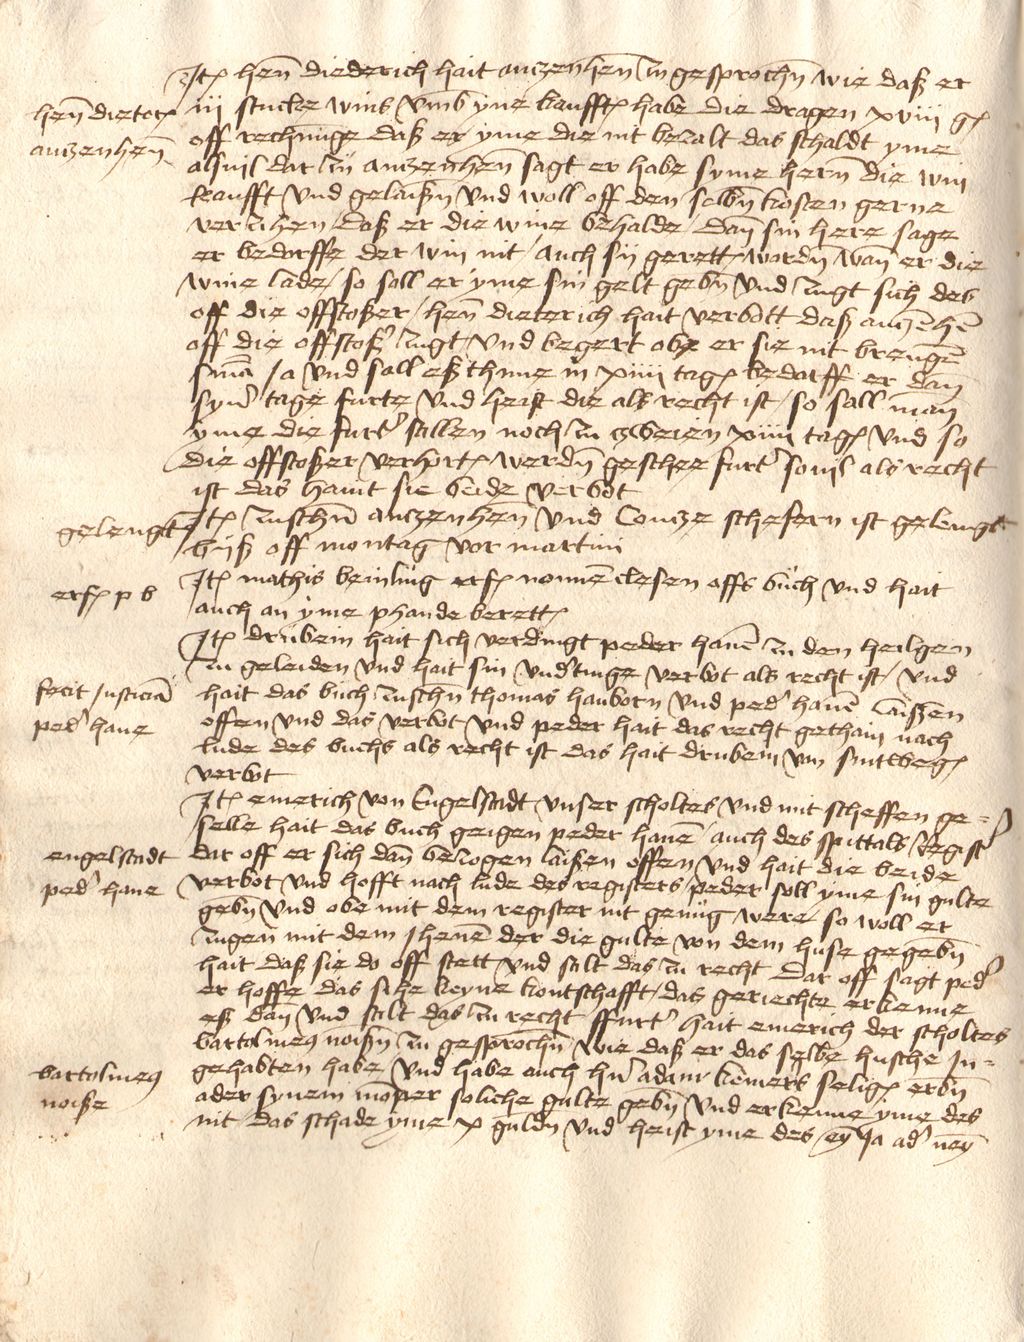 Jt(em) hen̄ diederich hait anczenhen̄ zugesproch(e)n wie daß er
hen̄ dieterich
anczenhen̄
iii stucke wins vmb yne kaufft habe die dragen xviii g(u)l(den)
off rechnu(n)ge daß er yme die nit beczalt das schaldt yme
alsuil dar zu anczenhen̄ sagt er habe syme hern̄ die win
kaufft vnd gelaißn̄ vnd woll off den selbn̄ kosten gerne
verzihen daß er die wine behalde dan̄ sin here sage
er bedorffe der win nit / auch sij gerett wordn̄ wan̄ er die
wine lade / so soll er yme sin gelt gebn̄ vnd zugt sich des
off die offstoßer / hen̄ dieterich hait verbott daß anczēhē
off die offstoß(er) zugt vnd begert obe er sie nit brengē
ja vnd sall eß thune in xiiii tag(en) bedorff er dan̄
syn(er) tage furte(r) vnd heist die als recht ist / so sall man
yme die furt(er) stellen noch zu zweien xiiii tag(en) vnd so
die offstoßer verhort werdn̄ geschee furt(er) souil als recht
ist das haint sie beide verbot
gelengt
Jt(em) zuschn̄ anczenhen vnd Concze schefern ist gelengt
biß off montag vor martini
erf(olgt) p b
Jt(em) mathis beinling erf(olgt) nonnē clesen offs buch vnd hait
auch an yme phande berett
Jt(em) drubein hait sich verdingt peder hanē zu den heilgen
zu geleiden vnd hait sin vnd(er)tinge verbot als recht ist / vnd
fecit justiciā
ped(er) hane
hait das buch zuschn̄ thomas hauborn vnd ped(er) hanē laißen
offen vnd das verbot vnd peder hait das recht gethain nach
lude des buchs als recht ist das hait drubein von sintwegē
verbot
Jt(em) emerich von Engelstadt vnser scholtes vnd mit scheffen ge=
selle hait das buch geigen peder hanē / auch des spittals regist(er)
engelstadt
ped(er) hane
dar off er sich dan̄ beczogen laißen offen vnd hait die beide
verbot vnd hofft nach lude des registers / peder soll yme sin gulte
gebn̄ vnd obe mit dem register nit genug were / so woll er
zugen mit dem jhenē der die gulte von dem huse gegebn̄
hait daß sie do off stett vnd stalt das zu recht dar off sagt ped(er)
er hoffe das sihe keyne kontschafft / das geriechte erkenne
eß dan̄ vnd stelt das zu recht ffurt(er) hait emerich der scholtes
bartolme(us) noißn̄ zu gesproch(e)n wie daß er das selbe husche jn=
bartolme(us)
noiße
gehabten habe vnd habe auch hn̄ adam kemers selig(en) erbn̄
ader synem mōper soliche gulte gebn̄ vnd erkenne yme des
nit das schade yme x guldn̄ vnd heist yme des eȳ ja ad(er) neȳ